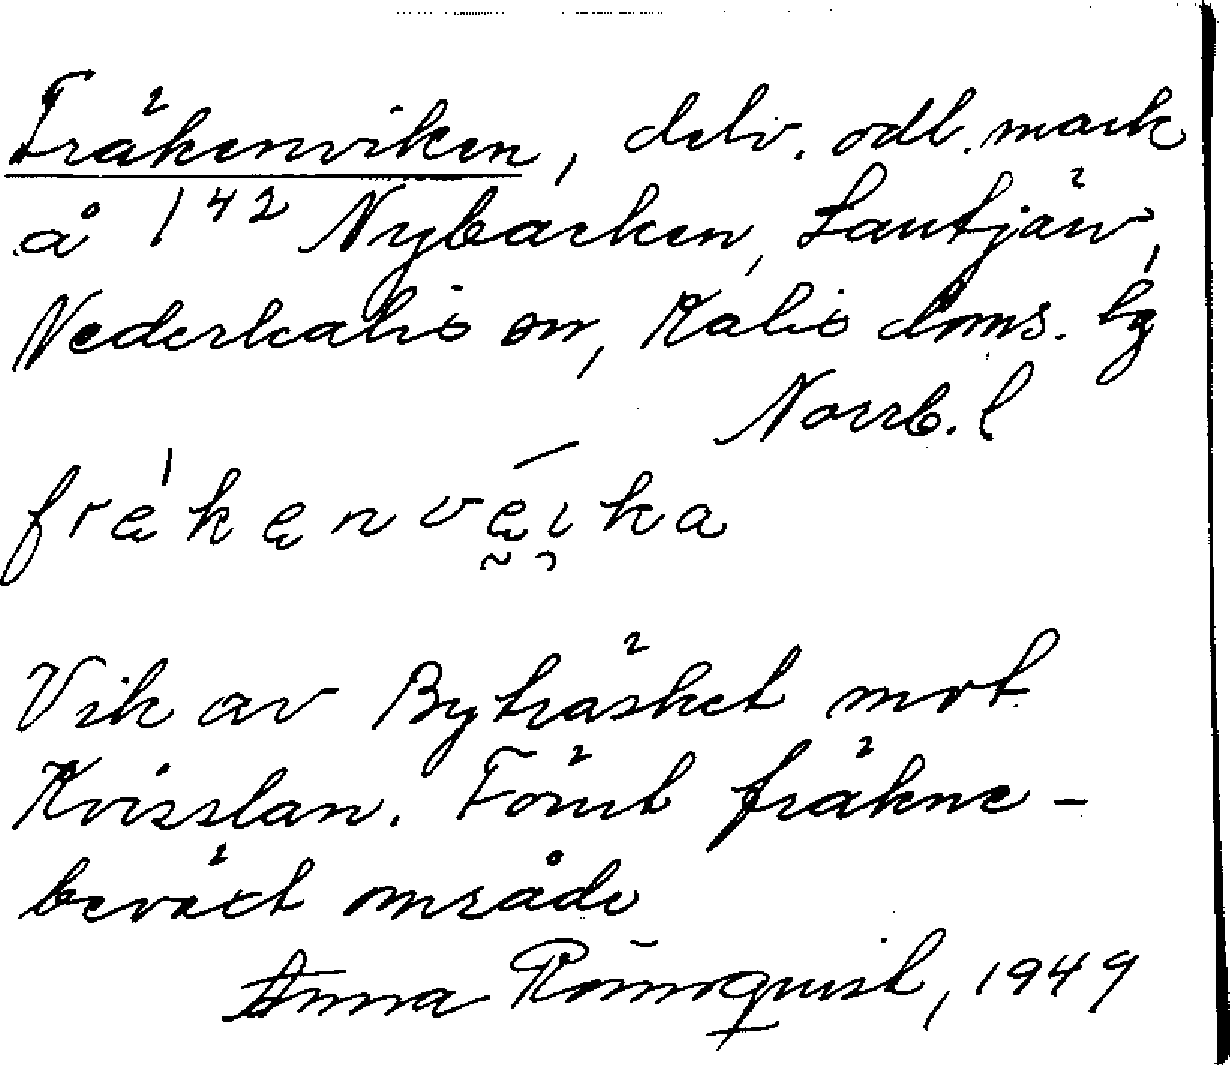 Fräkenviken, delv. odl. mark
å 1⁴² Nybacken, Lautjärv,
Nederkalix sn, Kalix doms. lg
Norrb. l
fre̜kenve̜i̯ka
Vik av Byträsket mot
Kvisslan. Förut fräkne-
beväxt område
Anna Rönnquist, 1949